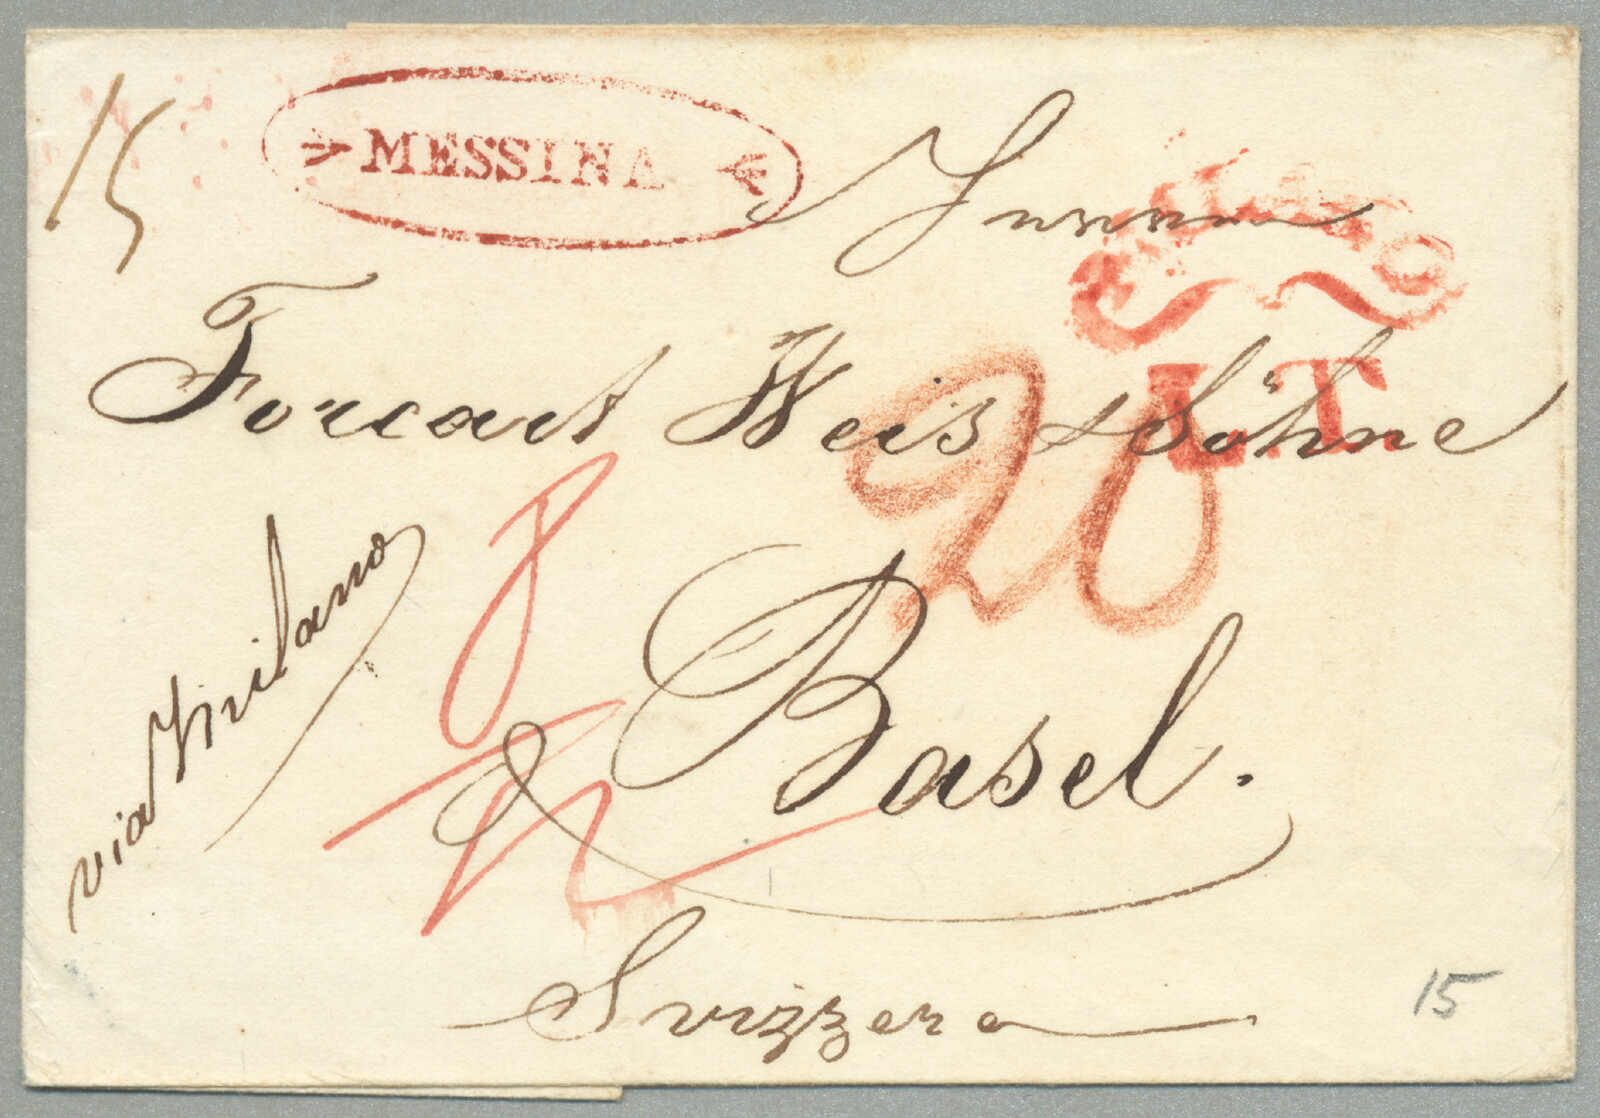 15
MESSINA
Forcart Weis & Söhne
L.T.
20
via Milano
Basel.
Svizzera
15